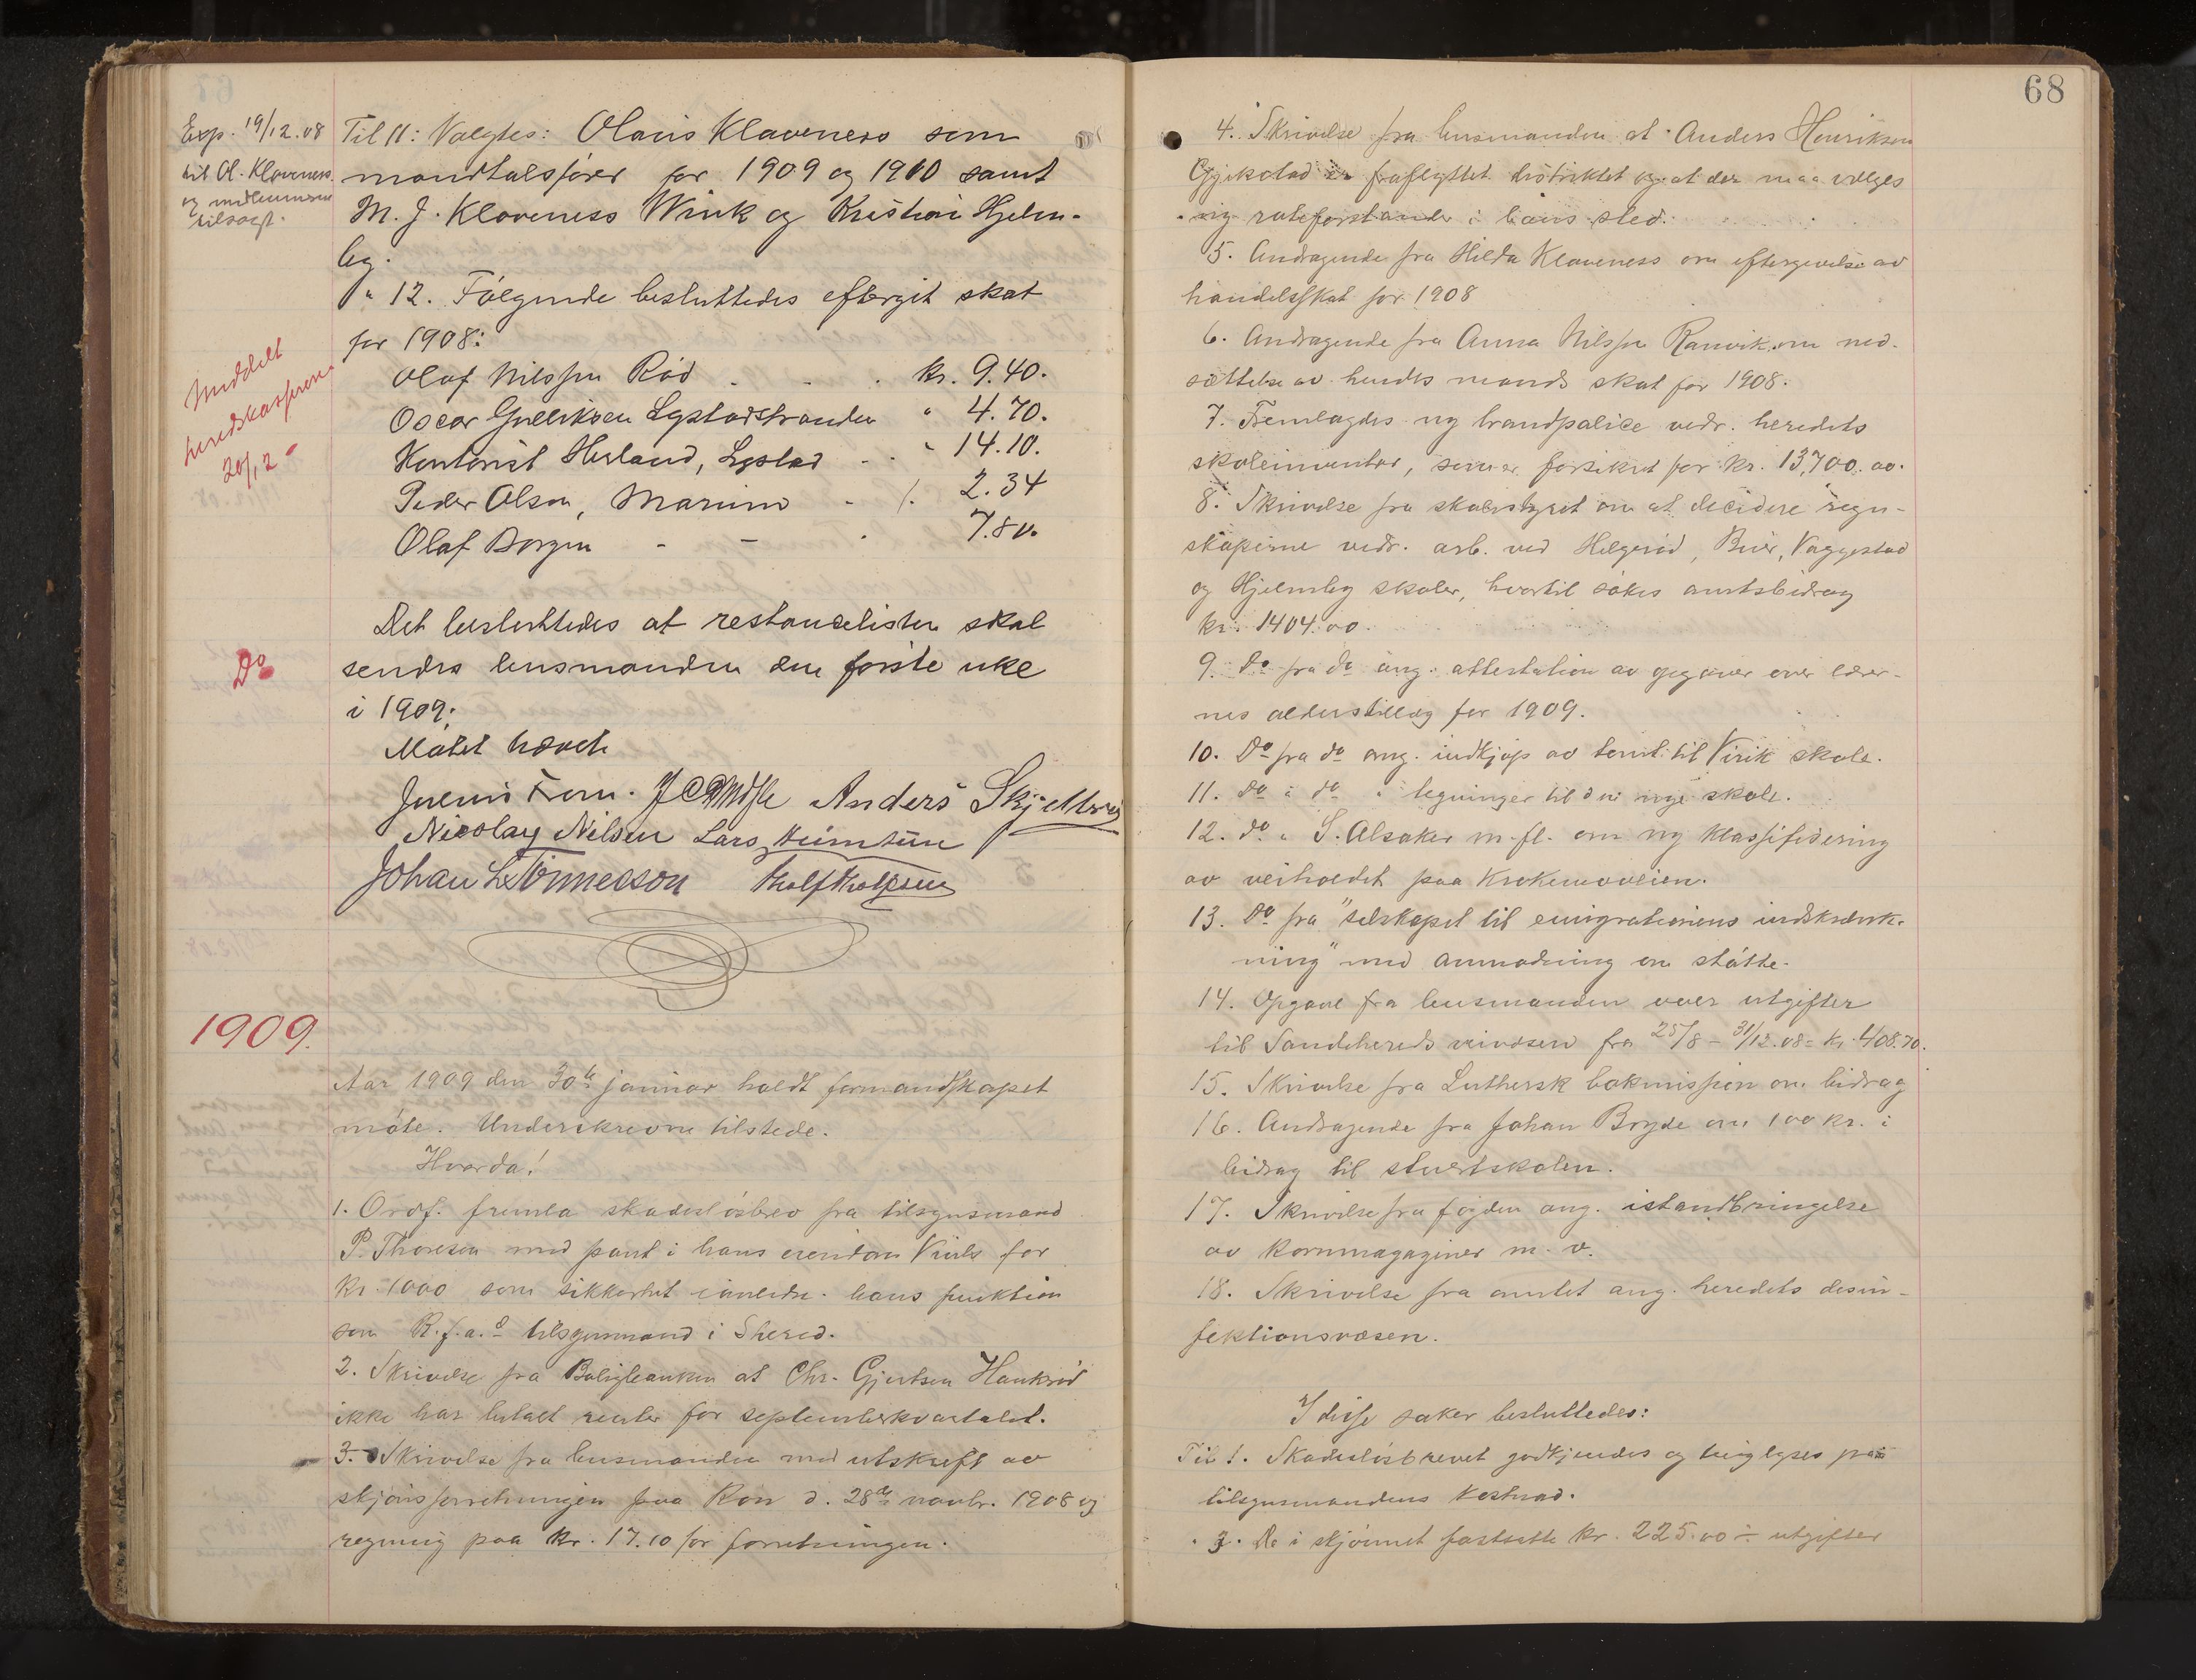 Exp. 19/12.08
til Ol. Klaveness
og medlemmene
tilsagt.
Til 11: Valgtes: Olavis Klaveness som
mandtalsfører for 1909 og 1910 samt
M. J. Klaveness Wink og Kristian Hjelm-
by.
" 12. Følgende besluttedes eftergit skat
for 1908:
Meddelt
heredskasseren
20/12
Olaf Nilssen Rød . . . kr. 9.40.
Oscar Gulliksen Lystadstranden " 4.70.
Kontorist Herland, Lystad . . " 14.10.
Peder Olsen, Marum - /. 2.34
Olaf Borgen - - . 7.80.
Det besluttedes at restanselisten skal
Do
sendes lensmanden den første uke
i 1909.
Møtet hævet
Julius Fevn. Anders Skjelbred
Nicolay Nilsen Lars Heimtun
Johan L. Tønnesson Tholf Tholfsen
1909.
Aar 1909 den 30te januar holdt formandskapet
møte. Underskrevne tilstede.
Hvorda!
1. Ordf. fremla skadesløsbrev fra tilsynsmand
P. Thoresen med pant i hans eiendom Virik for
kr. 1000 som sikkerhet i anledn. hans funktion
som R.f.a.s tilsynsmand i Shered.
2. Skrivelse fra Boligbanken at Chr. Gjertsen Haukerød
ikke har betalt renter for septemberkvartalet.
3. Skrivelse fra lensmanden med utskrift av
skjønsforretningen paa Ron d. 28de novbr. 1908 og
regning paa kr. 17.10 for forretningen.
68
4. Skrivelse fra lensmanden at Anders Henriksen
Gjekstad er fraflyttet distriktet og at der maa vælges
ny roteforstander i hans sted.
5. Andragende fra Hilda Klaveness om eftergivelse av
handelsskat for 1908
6. Andragende fra Anna Nilssen Ranvik om ned-
sættelse av hendes mands skat for 1908.
7. Fremlagdes ny brandpolice vedr. heredets
skoleinventar, som er forsikret for kr. 13,700.00.
8. Skrivelse fra skolestyret om at decidere regn-
skaperne vedr. arb. ved Helgerød, Buer, Vaggestad
og Hjelmby skoler, hvortil søkes amtsbidrag
kr. 1404.00.
9. Do fra do ang. attestation av opgaver over lærer-
nes alderstillæg for 1909.
10. Do fra do ang. indkjøp av tomt til Virik skole.
11. Do " do " tegninger til den nye skole.
12. do " S. Alsaker m.fl. om ny klassifisering
av veiholdet paa Krokemoveien.
13. Do fra "selskapet til emigrationens indskrænk-
ning" med anmodning om støtte.
14. Opgave fra lensmanden over utgifter
til Sandehereds veivæsen fra 25/8 - 31/12.08 = kr. 408.70.
15. Skrivelse fra Luthersk bokmission om bidrag
16. Andragende fra Johan Bryde om 100 kr. i
bidrag til stuertskolen.
17. Skrivelse fra fogden ang. istandbringelse
av kornmagaginer m. v.
18. Skrivelse fra amtet ang. heredets desin-
fektionsvæsen.
I disse saker besluttedes:
Til 1. Skadesløsbrevet godkjendes og tinglyses paa
tilsynsmandens kostnad.
" 3. De i skjønnet fastsatte kr. 225.00 ÷ utgifter